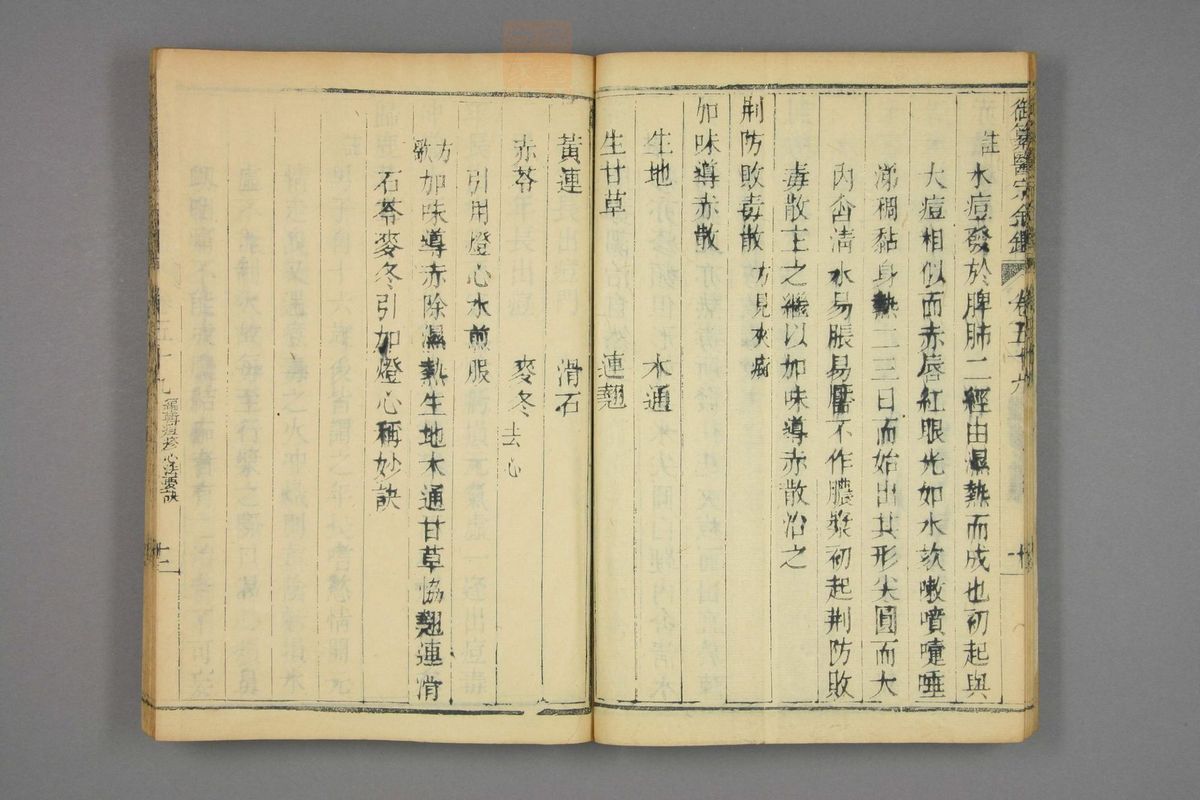 御纂醫宗金鑑 卷五十九
註 水痘發於脾肺二經由濕熱而成也初起與
大痘相似而赤唇紅眼光如水欬嗽噴嚏唾
涕稠黏身熱二三日而始出其形尖圓而大
內含清水易脹易靨不作膿漿初起荆防敗
毒散主之繼以加味導赤散治之
荆防敗毒散 方見夾癍
加味導赤散
生地 木通
生甘草 連翹
黃連 滑石
赤苓 麥冬 去心
引用燈心水煎服
方歌 加味導赤除濕熱生地木通甘草協翹連滑
石苓麥冬引加燈心稱妙訣
卷五十九 編輯痘疹心法要訣